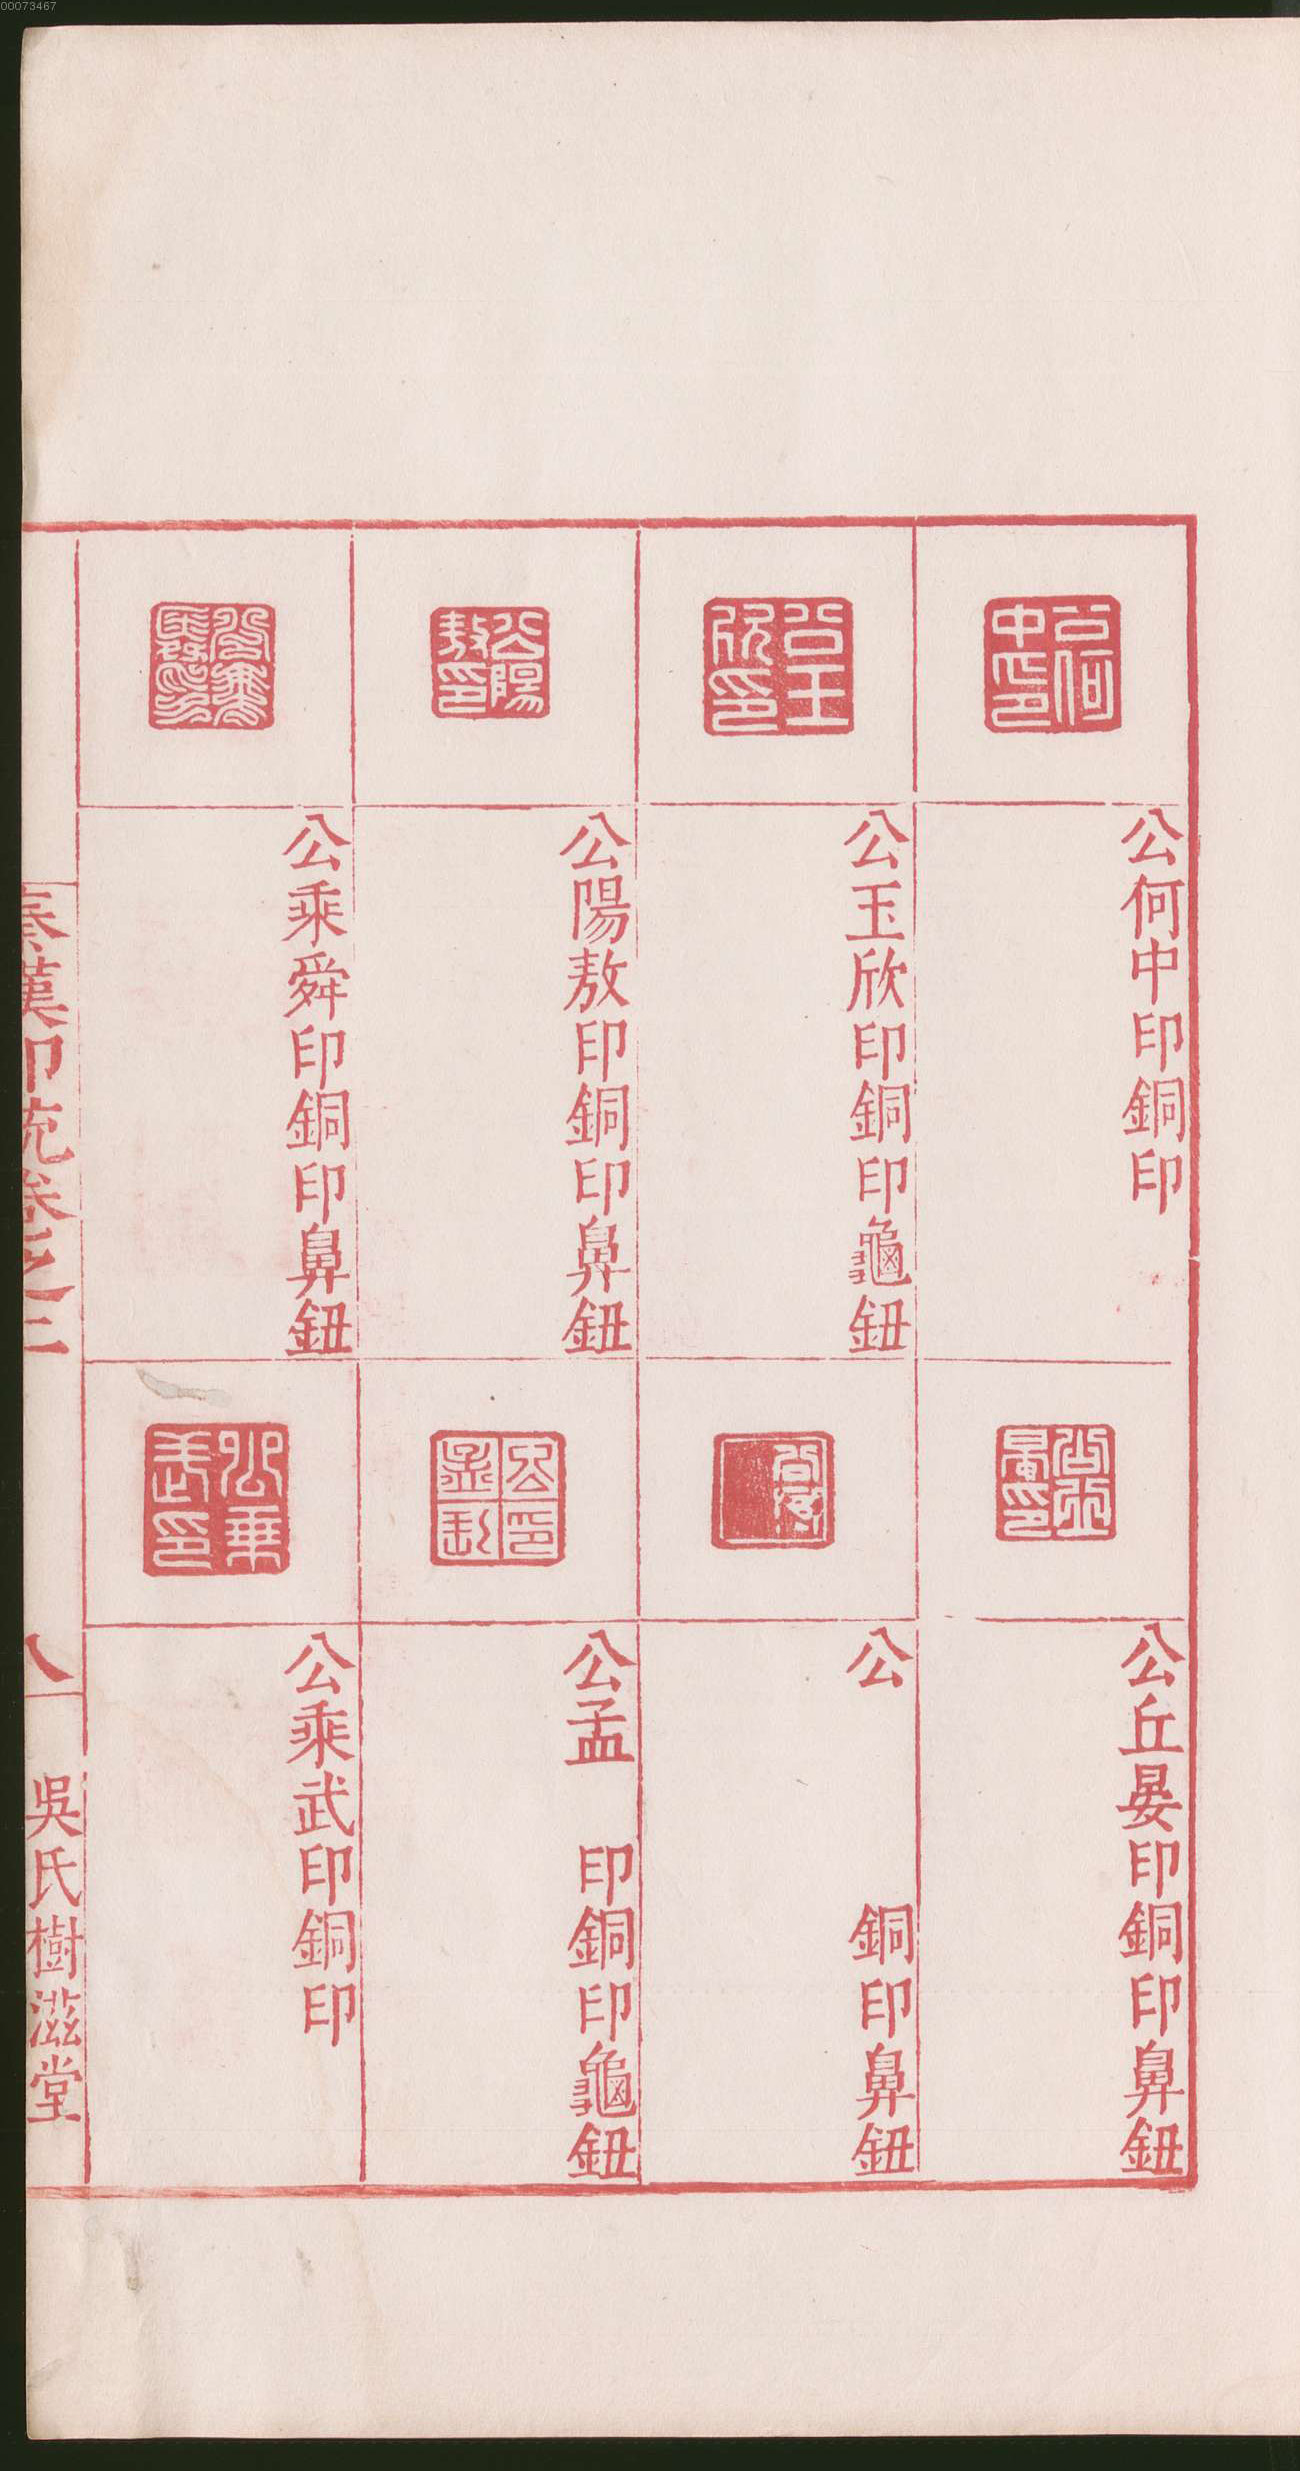 00073467
公何中印銅印
公玉欣印銅印龜鈕
公陽敖印銅印鼻鈕
公乘舜印銅印鼻鈕
公丘晏印銅印鼻鈕
公　銅印鼻鈕
公孟　印銅印龜鈕
公乘武印銅印
秦漢印統卷之二
八
吳氏樹滋堂
公何中印
公王欣印
公陽敖印
公乘武印